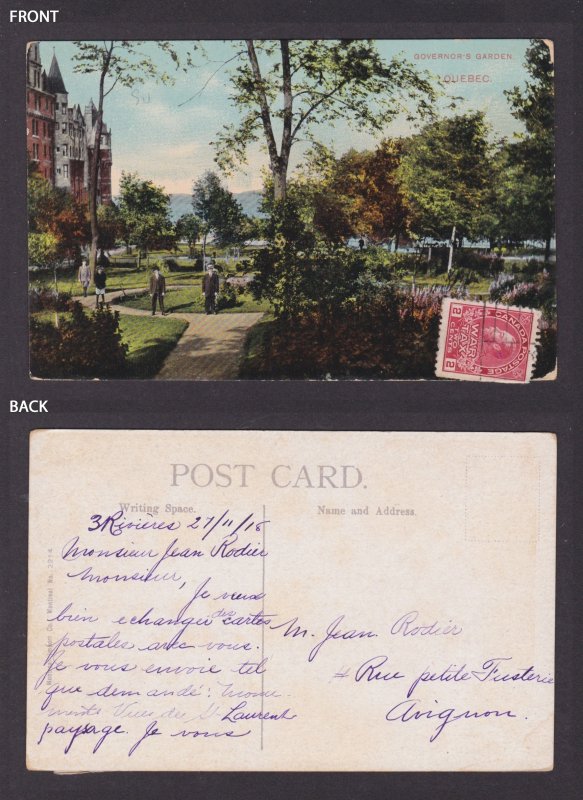 FRONT
GOVERNOR'S GARDEN.
QUEBEC.
CANADA POSTAGE
WAR
TAX
2 TWO CENTS 2
BACK
POST CARD.
Writing Space.
Name and Address.
3Rivières 27/11/18
Monsieur Jean Rodier
Monsieur,
Je veux
bien echanger des cartes
postales avec vous.
Je vous envoie tel
que demandé:
Vues de St Laurent
paysage. Je vous
M. Jean Rodier
4 Rue petite Fusterie
Avignon.
Montreal No. 2214